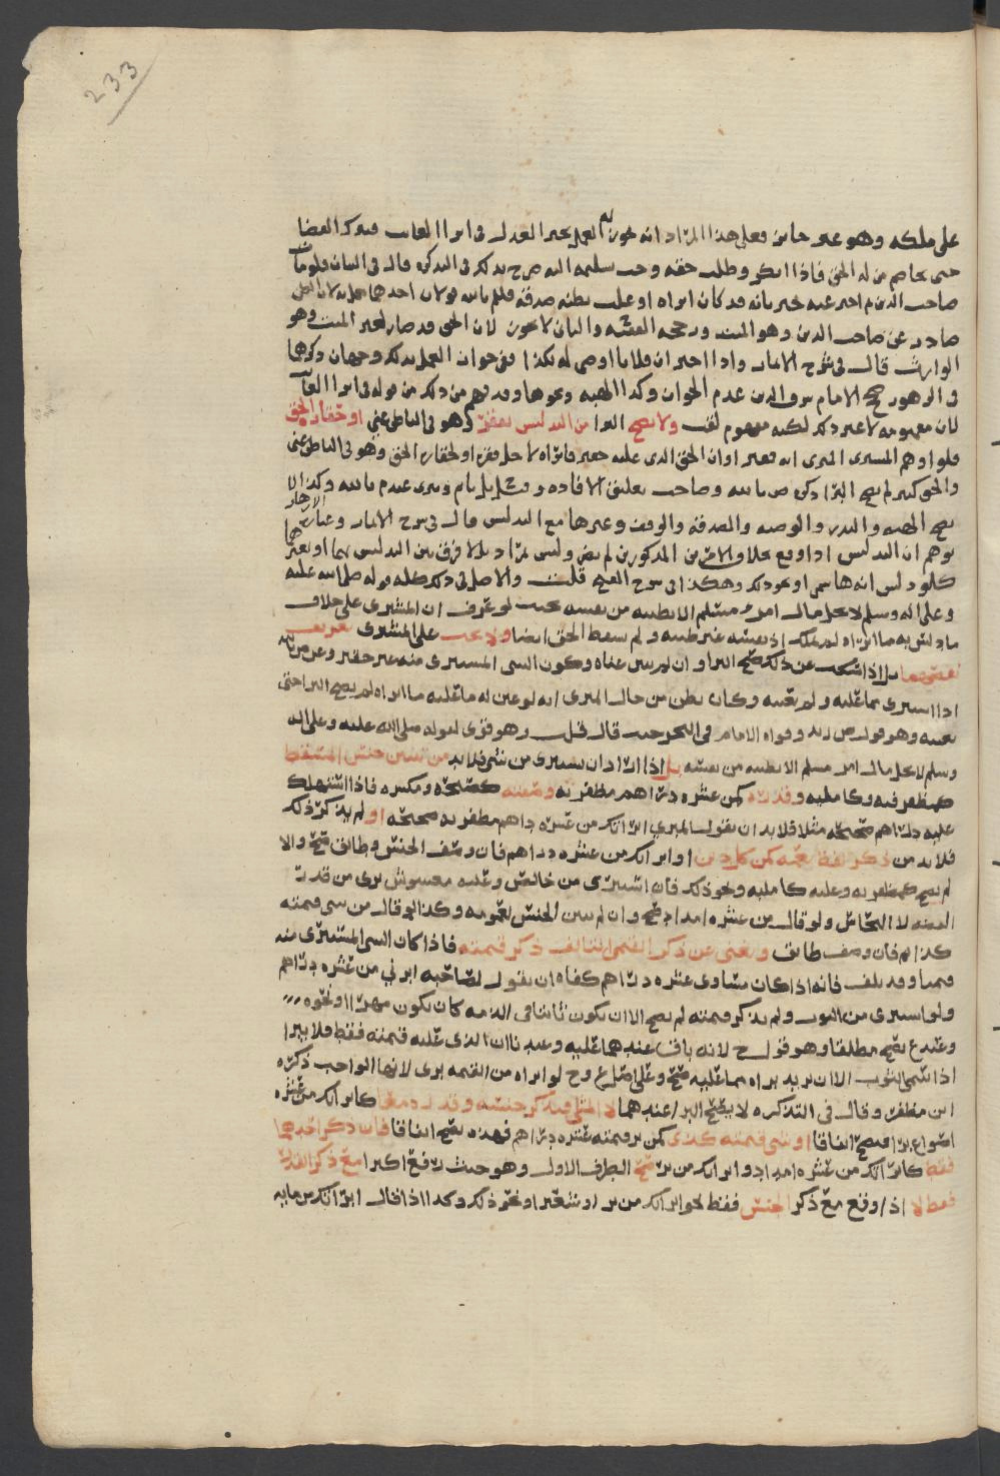 233
على ملكه وهو غير جائز فعلى هذا المراد انه يجوز له العمل بخبر العدل في ابرا الغائب فيترك القضا
حتى يخاصم من له الحق فاذا انكر وطلب حقه وجب تسليمه اليه صرح بذلك في التذكره قال في البيان فلو مات
صاحب الدين ثم اخبر عنه خبر بانه قد كان ابراه او غلب بظنه صدقه فللم بالله قولان احدهما
صادر عن صاحب الدين وهو الميت ورجحه الفقيه والثاني لا يجوز لان الحق قد صار لغير الميت وهو
الوارث قال في شرح الاثمار واذا اخبر ان فلانا اوصى له بكذا ففي جواز العمل بذلك وجهان ذكرهما
في الزهور صحح الامام شرف الدين عدم الجواز وكذا الهبه ونحوها وقد فهم من ذلك من قوله في ابرا الغائب
لان مفهومه لا غير ذلك لكنه مفهوم لقب ولا يصح البرا مع التدليس بفقر وهو في الباطن غني او حقارة الحق
فلو اوهم المستبري المبري انه فقير او ان الحق الذي عليه حقير فابراه لاجل فقره او لحقارة الحق وهو في الباطن غني
والحق كثير لم يصح البرا ذكره ص بالله وصاحب تعليق الافاده وقيل يام وبرى عندم بالله وكذا لا
يصح الهبه والنذر والوصيه والصدقه والوقف وغيرها مع التدليس قال في شرح الاثمار وعبارة الازهار
توهم ان التدليس اذا وقع بخلاف الامرين المذكورين لم يضر وليس بمراد بل لا فرق بين التدليس بهما او بغيرهما
كلو دلس انه هاشمي او نحو ذلك وهكذا في شرح الفتح قلت والاصل في ذلك كله قوله صلى الله عليه
وعلى اله وسلم لا يحل مال امرء مسلم الا بطيبه من نفسه بحيث لو عرف ان المشتري على خلاف
ما دلس به ما ابراه لم يملك اذ نفسه غير طيبه ولم يسقط الحق ايضا ولا يجب على المشتري تعريف
عكسهما بل اذا سكت عن ذلك صح البرا وان لم يبين غناه وكون الشي المستبرى منه غير حقير وعن ص بالله
اذا استبرى مما عليه ولم يعينه وكان يظن من حال المبري انه لو عين له ما عليه ما ابراه لم يصح البرا حتى
يعينه وهو قول ص زيد وقواه الامام في البحر حيث قال قلت وهو قوي لقوله صلى الله عليه وعلى اله
وسلم لا يحل مال امر مسلم الا بطيبه من نفسه بل اذا اراد ان يستبرى من شي فلابد من تبيين جنس المسقط
كمظفر فيه وكامليه وقدره كمن عشره دراهم مظفريه وصفته كصحيحه ومكسره فاذا استهلك
عليه دراهم صحيحه مثلا فلابد ان يقول المبري ابراتك من عشره دراهم مظفريه صحيحه او لم يذكر ذلك
فلابد من ذكر لفظ يعمه كمن كل دين او ابراتك من عشره دراهم فان وصف الجنس وطابق صح والا
لم يصح كمظفريه وعليه كامليه ونحو ذلك فان استبرى من خالص وعليه مغشوش برى من قدر
الفضه لا النحاس ولو قال من عشره امداد صح وان لم يبين الجنس لعمومه وكذا لو قال من شي قيمته
كذا ثم فان وصف طابق ويغني عن ذكر القيمي التالف ذكر قيمته فاذا كان الشي المستبرى منه
قيميا وقد تلف فانه اذا كان يساوي عشره دراهم كفاه ان يقول لصاحبه ابرني من عشره دراهم
ولو استبرى من الثوب ولم يذكر قيمته لم يصح الا ان يكون ثابتا في الذمه كان يكون مهرا او نحوه
وعند ع يصح مطلقا وهو قول ح لانه باق عندهما عليه وعندنا ان الذي عليه قيمته فقط فلا يبرا
اذا سمى الثوب الا ان يريد براه مما عليه صح وعلى اصل ع وح لو ابراه من القيمه برى لانها الواجب ذكره
ابن مظفر وقال في التذكره لا يصح البرا عندهما لا المثلي فيذكر جنسه وقدره معا كابراتك من عشره
اصواع برا فيصح اتفاقا او شي قيمته كذا كمن بر قيمته عشره دراهم فهذه يصح اتفاقا فان ذكر احدهما
فقط كابراتك من عشره امداد او ابراتك من بر صح الطرف الاول وهو حيث يرفع اكبرا مع ذكر القدر
فقط لا اذا وقع مع ذكر الجنس فقط نحو ابراتك من بر او شعير او نحو ذلك وكذا اذا قال ابراتك من مايه